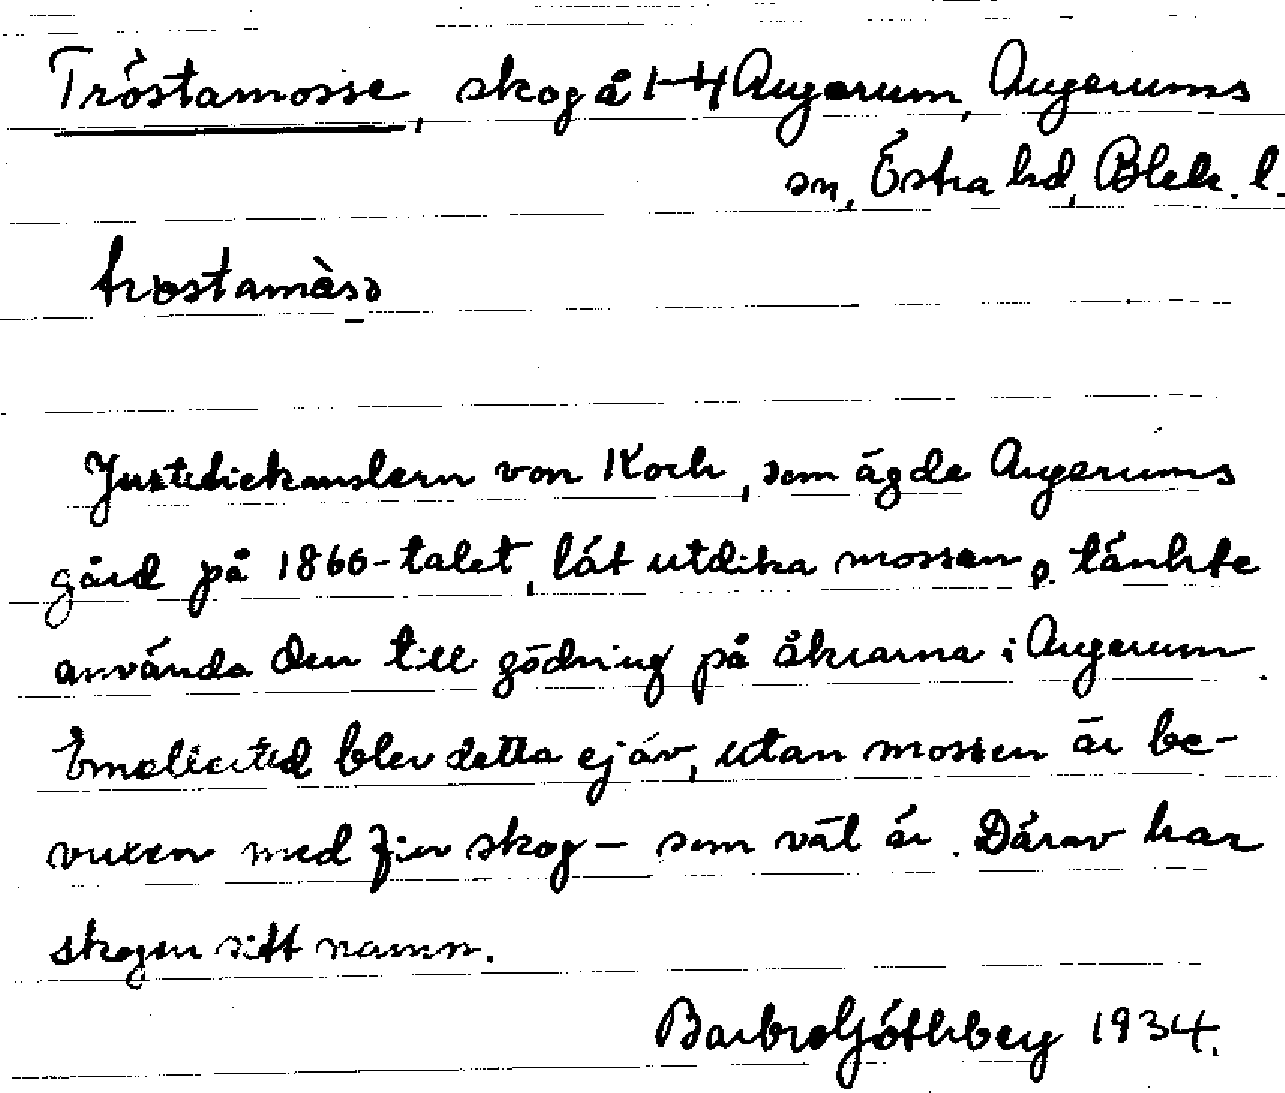 Tröstamosse, skog å 1-4 Augerum, Augerums
sn, Östra hd, Blek. l.
trøstamåsə
Justitiekanslern von Koch, som ägde Augerums
gård på 1860-talet, lät utdika mossen o. tänkte
använda den till gödning på åkrarna i Augerum.
Emellertid blev detta ej av, utan mossen är be-
vuxen med fin skog – som väl är. Därav har
skogen sitt namn.
Barbro Göthberg 1934.